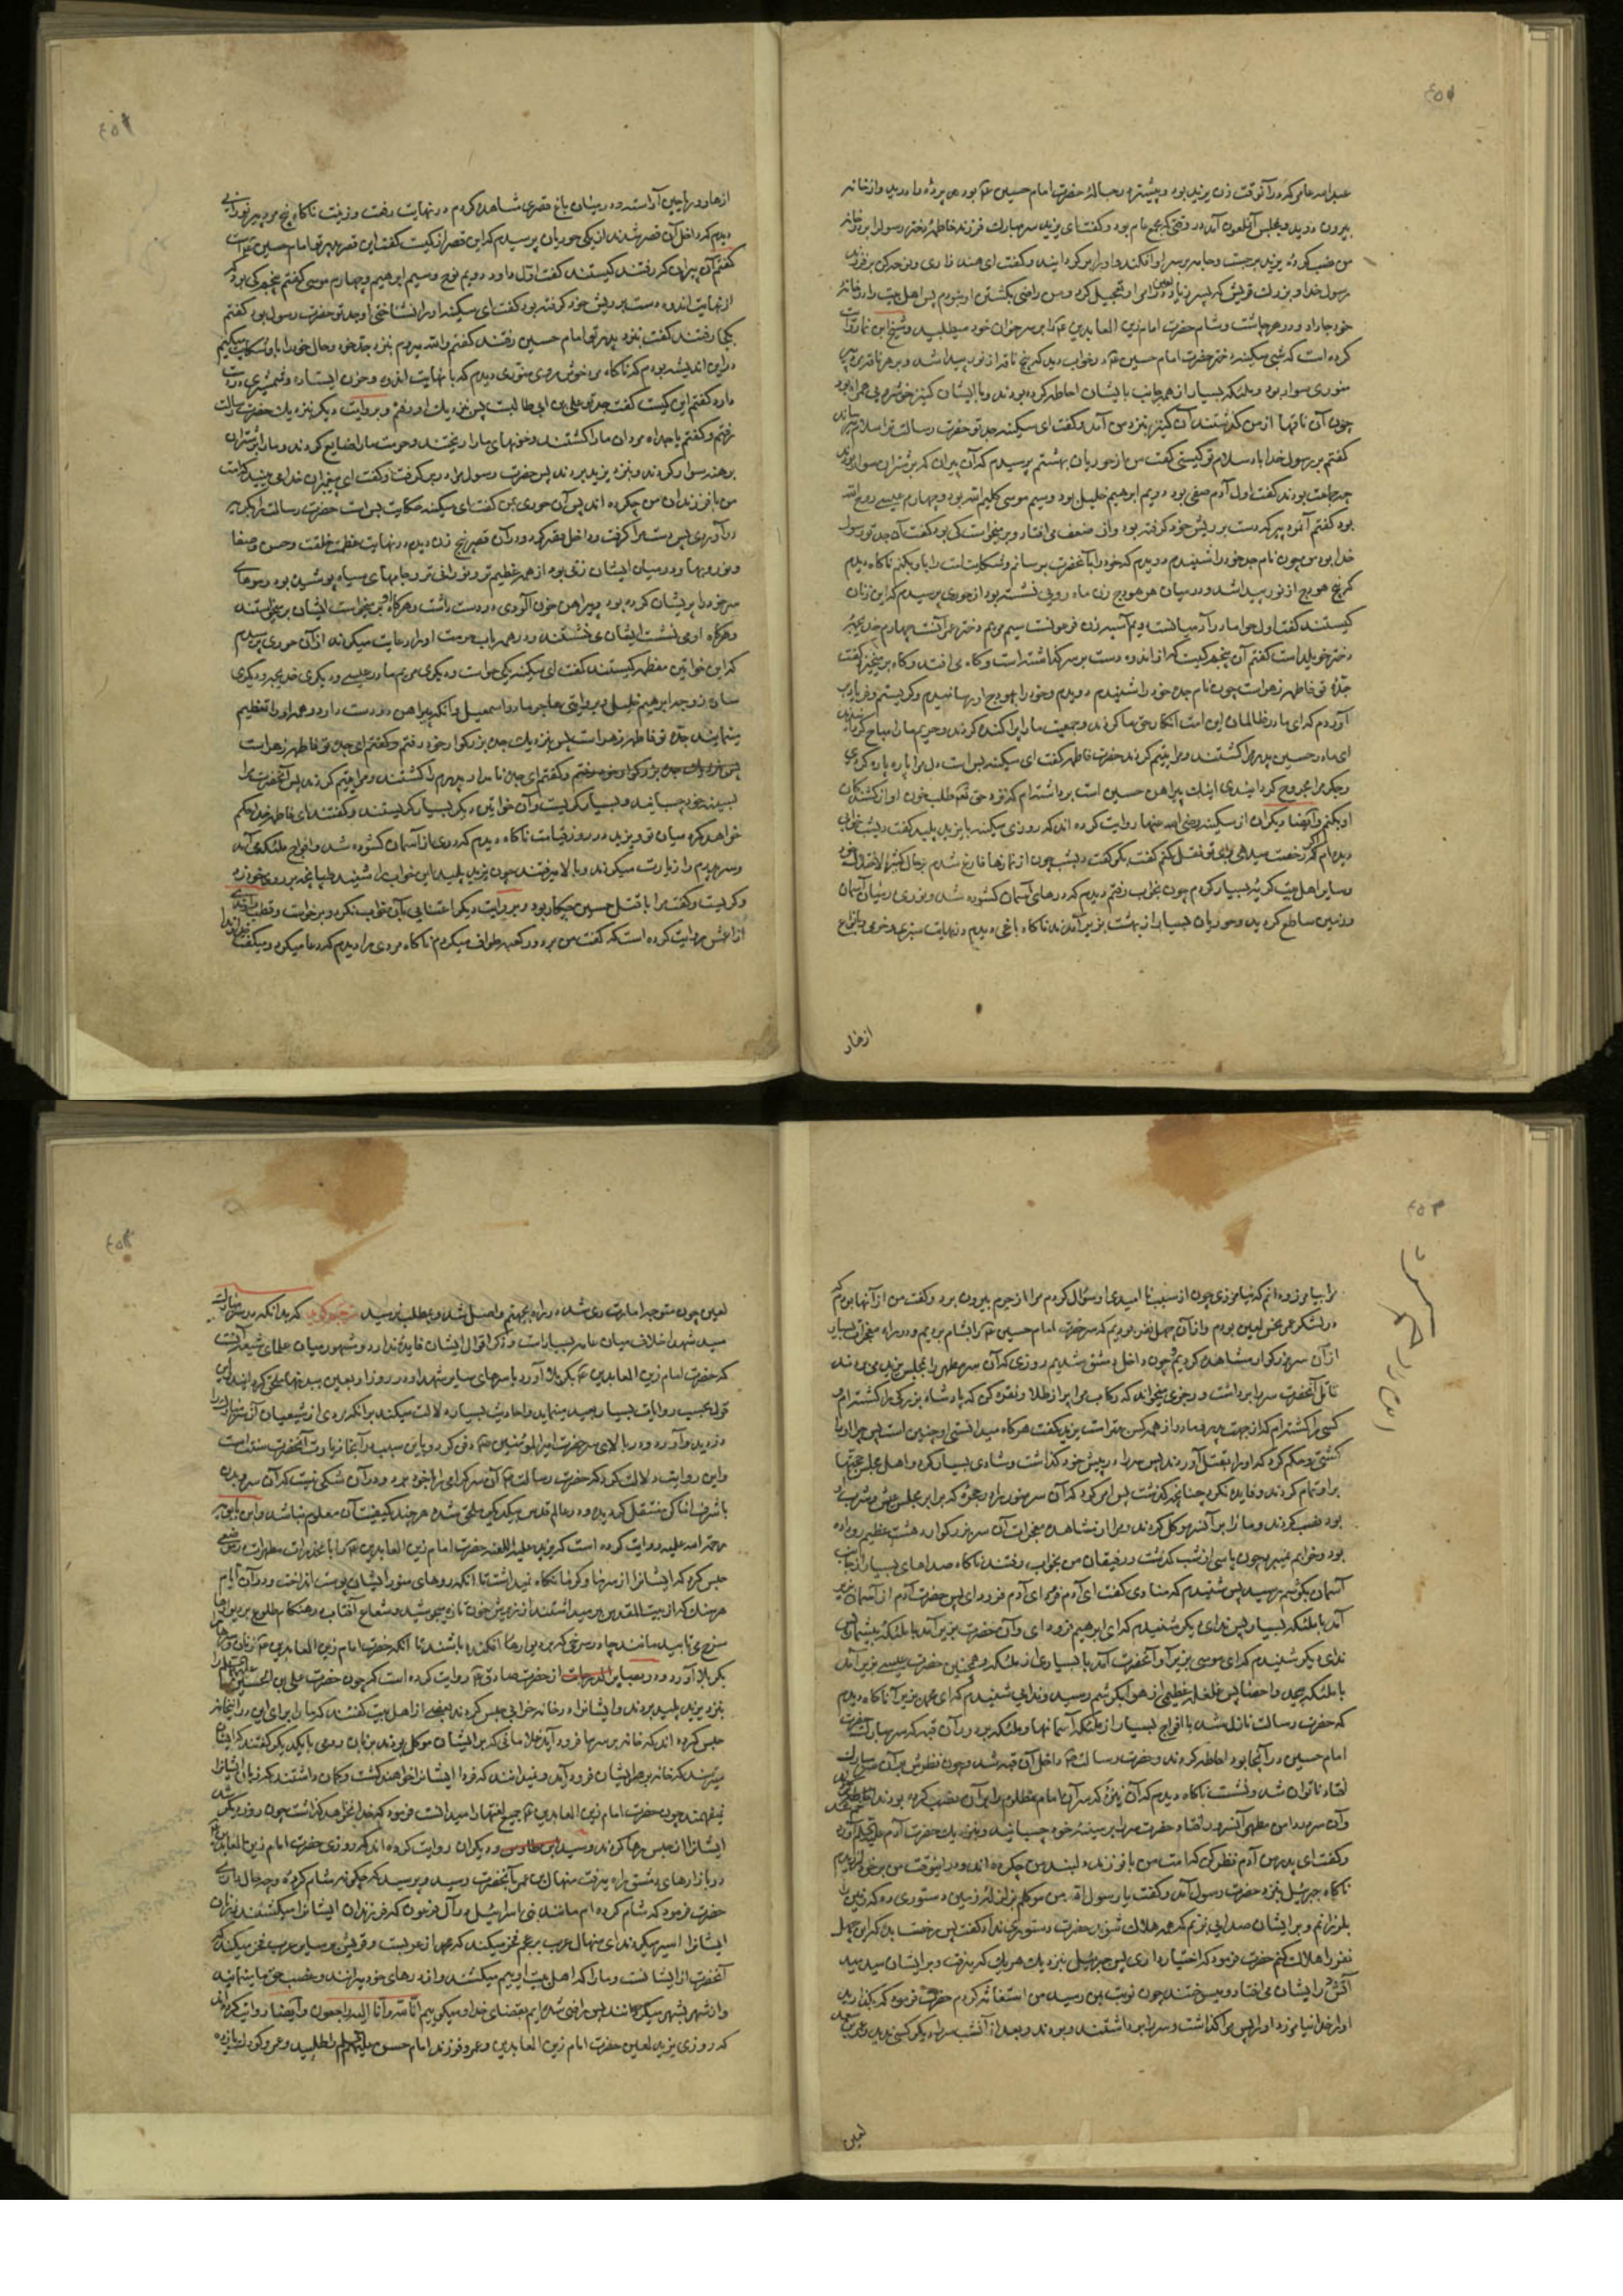 عبدالله عامر که در آنوقت زن یزید بود و پیشتر در حبالهٔ حضرت امام حسین ع بود پرده را درید و از خانه
بیرون دوید و بمجلس آنملعون آمد در وقتی که مجمع عام بود و گفت ای یزید سر مبارک فرزند فاطمه دختر رسول را بر در خانه
من نصب کردهٔ یزید برجست و جامه بر سر او افکند و او را برگردانید و گفت ای هند زاری و نوحه کن بر فرزند
رسول خدا و بزرک قریش که پسر زیاد لعین در امر او تعجیل کرد و من راضی بکشتن او نبودم پس اهل بیت را در خانهٔ
خود جا داد و در هر چاشت و شام حضرت امام زین العابدین ع را بر سر خوان خود میطلبید و شیخ ابن نما روایت
کرده است که شبی سکینه دختر حضرت امام حسین ع در خواب دید که پنج ناقه از نور پیدا شد و بر هر ناقه مرد پیر
نورانی سوار بود و ملئکه بسیار از همه جانب بایشان احاطه کرده بودند و با ایشان کنیز خوشروئی همراه بود
چون آن ناقها از من گذشتند آن کنیز بنزد من آمد و گفت ای سکینه جد تو حضرت رسالت ترا سلام میرساند
گفتم بر رسول خدا باد سلام تو کیستی گفت من از حوریان بهشتم پرسیدم که آن پیران که بر شتران سوار بودند
چه جماعت بودند گفت اول آدم صفی بود دویم ابراهیم خلیل بود و سیم موسی کلیم الله بود و چهارم عیسی روح الله
بود گفتم آنمرد پیر که دست بر ریش خود گرفته بود و از ضعف می افتاد و بر میخواست کی بود گفت آن جد تو رسول
خدا بود من چون نام جد خود را شنیدم دویدم که خود را بآنحضرت برسانم و شکایت امت را باو بکنم ناگاه دیدم
که پنج هودج از نور پیدا شد و در میان هر هودج زن ماه روئی نشسته بود از حوری پرسیدم که این زنان
کیستند گفت اول حوا مادر آدمیانست دویم آسیه زن فرعونست سیم مریم دختر عمرانست چهارم خدیجه
دختر خویلد است گفتم آن پنجم کیست که از اندوه دست بر سر گذاشته است و گاه می افتد و گاه بر میخیزد گفت
جدّه تو فاطمه زهراست چون نام جده خود را شنیدم دویدم و خود را بهودج او رسانیدم و گریستم و فریاد بر
آوردم که ای مادر ظالمان این امت انکار حق ما کردند و جمعیت ما را پراکنده کردند و حریم ما را مباح کردند
ای مادر حسین پدرم را کشتند و مرا یتیم کردند حضرت فاطمه گفت ای سکینه بس است دل مرا پاره پاره کردی
و جگر مرا مجروح گردانیدی اینک پیراهن حسین است برداشته ام که نزد حق تعم طلب خون او از کشندگان
او بکنم و ایضا دیگران از سکینه رضی الله عنها روایت کرده اند که روزی سکینه با یزید پلید گفت دیشب خوابی
دیده ام اگر رخصت میدهی برای تو نقل کنم گفت بگو گفت دیشب چون از نمازها فارغ شدم بر حال کثیر الاختلال خود
و سایر اهل بیت گریهٔ بسیار کردم چون بخواب رفتم دیدم که درهای آسمان گشوده شد و نوری در میان آسمان
و زمین ساطع گردید و حوریان بسیار از بهشت بزیر آمدند ناگاه باغی دیدم در نهایت سبزی و خرمی بانواع
ازهار
ازهار و ریاحین آراسته و در میان باغ قصری مشاهده کردم در نهایت رفعت و زینت ناگاه پنج مرد پیر نورانی
دیدم که داخل آن قصر شدند از یکی حوریان پرسیدم که این قصر از کیست گفت این قصر پدر تو امام حسین ع است
گفتم آن پیران که رفتند کیستند گفت اول داود دویم نوح و سیم ابرهیم و چهارم موسی گفتم پنجم کی بود که
از نهایت اندوه دست بر ریش خود گرفته بود گفت ای سکینه او را نشناختی او جد تو حضرت رسول بود گفتم
بکجا رفتند گفت بنزد پدر تو امام حسین رفتند گفتم والله میروم بنزد جد خود و حال خود را باو شکایت میکنم
در این اندیشه بودم که ناگاه مرد خوش روی منوری دیدم که با نهایت اندوه و حزن ایستاده و شمشیری در دست
دارد گفتم این کیست گفت جد تو علی بن ابی طالبست پس نزدیک او رفتم و بروایت دیگر نزدیک حضرت رسالت
رفتم و گفتم یا جداه مردان ما را کشتند و خونهای ما را ریختند و حرمت ما را ضایع کردند و ما را بر شتران
برهنه سوار کردند و بنزد یزید بردند پس حضرت رسول مرا در بر گرفت و گفت ای پیغمبران خدا می بینید که امت
من با فرزندان من چکرده اند پس آن حوری بمن گفت ای سکینه شکایت بس است حضرت رسالت را بگریه
درآوردی پس دست مرا گرفت و داخل قصر کرد و در آن قصر پنج زن دیدم در نهایت عظمت خلقت و حسن و صفا
و نور و بها و در میان ایشان زنی بود از همه عظیم تر و نورانی تر و جامهای سیاه پوشیده بود و موهای
سر خود را پریشان کرده بود و پیراهن خون آلودی در دست داشت و هرگاه او بر میخواست ایشان بر میخواستند
و هرگاه او می نشست ایشان می نشستند و در همه باب حرمت او را رعایت میکردند از آن حوری پرسیدم
که این خواتین معظمه کیستند گفت ای سکینه یکی حواست و دیگری مریم مادر عیسی و دیگری خدیجه و دیگری
ساره زوجه ابرهیم خلیل و بروایتی هاجر مادر اسمعیل و آنکه پیراهن در دست دارد و همه او را تعظیم
مینمایند جدّه تو فاطمه زهراست پس نزدیک جده بزرگوار خود رفتم و گفتم ای جده تو فاطمه زهراست
پس نزدیک جده بزرگوار خود رفتم و گفتم ای جده نامدار پدرم را کشتند و مرا یتیم کردند پس آنحضرت مرا
بسینه خود چسبانید و بسیار گریست و آن خواتین دیگر بسیار گریستند و گفتند ای فاطمه خدا حکم
خواهد کرد میان تو و یزید در روز قیامت ناگاه دیدم که دری از آسمان گشوده شد و افواج ملئکه می آمدند
و سر پدرم را زیارت میکردند و بالا میرفتند چون یزید پلید این خواب را شنید طپانچه بر روی خود زد
و گریست و گفت مرا با قتل حسین چکار بود و بروایت دیگر اعتنائی بآن خواب نکرد و برخواست و قطب راوندی
از اعمش روایت کرده است که گفت من بر دور کعبه طواف میکردم ناگاه مردی را دیدم که در دعا میکرد و میگفت خداوندا
مرا بیامرز و دانم که نیامرزی چون از سبب نا امیدی او سؤال کردم مرا از حرم بیرون برد و گفت من از آنها بودم که
در لشکر عمر نحس لعین بودم و از آن چهل نفر بودم که سر حضرت امام حسین ع را بشام بردیم و در راه معجزات بسیار
از آن سر بزرگوار مشاهده کردیم و چون داخل دمشق شدیم روزی که آن سر مطهر را بمجلس یزید می بردند
قاتل آنحضرت سر را برداشت و رجزی میخواند که رکاب مرا پر از طلا و نقره کن که پادشاه بزرگی را کشته ام و
کسی را کشته ام که از جهت پدر و مادر از همه کس بهتر است یزید گفت هرگاه میدانستی او چنین است پس چرا او را
کشتی و حکم کرد که او را بقتل آوردند پس سر را در پیش خود گذاشت و شادی بسیار کرد و اهل مجلس حجتها
بر او تمام کردند و فایده نکرد چنانچه گذشت پس امر کرد که آن سر منور را در حجرهٔ که برابر مجلس عیش و شرب او
بود نصب کردند و ما را بر آنسر موکل کردند و مرا از مشاهده معجزات آن سر بزرگوار دهشت عظیم رو داده
بود و خوابم نمیبرد چون پاسی از شب گذشت و رفیقان من بخواب رفتند ناگاه صداهای بسیار از جانب
آسمان بگوشم رسید پس شنیدم که منادی گفت ای آدم فرود ای پس حضرت آدم از آسمان بزیر
آمد با ملئکه بسیار پس ندای دیگر شنیدم که ای ابرهیم فرود ای و آن حضرت بزیر آمد با ملئکه بیشمار پس
ندای دیگر شنیدم که ای موسی بزیر آ و آنحضرت آمد با بسیاری از ملئکه و همچنین حضرت عیسی بزیر آمد
با ملئکه بیحد و احصا پس غلغله عظیمی از هوا بگوشم رسید و ندائی شنیدم که ای محمد بزیر آ ناگاه دیدم
که حضرت رسالت نازل شد با افواج بسیار از ملئکه آسمانها و ملئکه بر دور آن قبه که سر مبارک حضرت
امام حسین در آنجا بود احاطه کردند و حضرت رسالت ص داخل آن قبه شد و چون نظرش بر آن سر مبارک
افتاد ناتوان شد و نشست ناگاه دیدم که آن نیزهٔ که سر آن امام مظلوم را بر آن نصب کرده بودند خم شد
و آن سر در دامن مطهر آنسرور افتاد حضرت سر را بر سینهٔ خود چسبانید و بنزدیک حضرت آدم آورد
و گفت ای پدر من آدم نظر کن که امت من با فرزند دلبند من چکرده اند در اینوقت من بر خود لرزیدم
ناگاه جبرئیل بنزد حضرت رسول آمد و گفت یا رسول الله من موکلم بزلزله زمین دستوری ده که زمین را
بلرزانم و بر ایشان صدائی بزنم که همه هلاک شوند حضرت دستوری نداد گفت پس رخصت بده که این چهل
نفر را هلاک کنم حضرت فرمود که اختیار داری پس جبرئیل بنزدیک هر یک که میرفت و بر ایشان میدمید
آتش در ایشان می افتاد و میسوختند چون نوبت بمن رسید من استغاثه کردم حضرت فرمود که بگذارید
او را خدا نیامرزد او را پس مرا گذاشت و سر را برداشتند و بردند و بعد از آنشب سر را دیگر کسی ندید و عمر
لعین
لعین چون متوجه امارت ری شد در راه بجهنم واصل شد و بمطلب نرسید که بدانکه در سر مبارک
سید شهدا خلاف میان عامه بسیار است و ذکر اقوال ایشان فایده ندارد و مشهور میان علمای شیعه آنست
که حضرت امام زین العابدین ع بکربلا آورد با سرهای سایر شهدا و در روز اربعین ببدنها ملحق گردانید و این
قول بحسب روایات بسیار بعید مینماید و احادیث بسیار دلالت میکند بر آنکه مردی از شیعیان آن سر مبارک را
دزدید و آورد و در بالای سر حضرت امیرالمؤمنین ع دفن کرد و باین سبب در آنجا زیارت آنحضرت سنت است
و این روایت دلالت کرد که حضرت رسالت ص آن سر گرامی را با خود برد و در آن شکی نیست که آن سر و بدن
باشرف اماکن منتقل گردیده و در عالم قدس بیکدیگر ملحق شده هر چند کیفیت آن معلوم نباشد و ابن بابویه
رحمه الله علیه روایت کرده است که یزید علیه اللعنه حضرت امام زین العابدین ع را با مخدرات مطهرات در موضعی
حبس کرد که ایشانرا از سرما و گرما نگاه نمیداشت تا آنکه روهای منور ایشان پوست انداخت و در آن ایام
هر سنک که از بیت المقدس بر میداشتند از زیرش خون تازه میجوشید و شعاع آفتاب در هنگام طلوع بر دیوارها
سرخ می تابید مانند چادر سرخی که بر دیوارها افکنده باشند تا آنکه حضرت امام زین العابدین ع با زنان و سرها
بکربلا آورد و در بصایر الدرجات از حضرت صادق ع روایت کرده است که چون حضرت علی بن الحسین علیهما السلام را
بنزد یزید پلید بردند و ایشانرا در خانه خرابی حبس کردند بعضی از اهل بیت گفتند که ما را برای این در اینخانه
حبس کرده اند که خانه بر سر ما فرود آید غلامانی که بر ایشان موکل بودند بزبان رومی با یکدیگر گفتند که ایشان
میترسند که خانه بر سر ایشان فرود آید و نمیدانند که فردا ایشانرا خواهند کشت و گمان داشتند که زبان ایشانرا
نمیفهمند چون حضرت امام زین العابدین ع جمیع لغتها را میدانست فرمود که خدا نخواهد گذاشت چون روز دیگر شد
ایشانرا از حبس رها کردند و سید ابن طاوس و دیگران روایت کرده اند که روزی حضرت امام زین العابدین ع
در بازارهای دمشق راه میرفت منهال بن عمر بآنحضرت رسید و پرسید که چگونه شام کردهٔ و چه حال داری
حضرت فرمود که شام کرده ام مانند بنی اسرائیل در آل فرعون که فرزندان ایشانرا میکشتند و زنان
ایشانرا اسیر میکردند ای منهال عرب بر عجم فخر میکنند که محمد از عربست و قریش بر سایر عرب فخر میکنند که
آنحضرت از ایشانست و ما را که اهل بیت اوییم میکشند و از درهای خود میرانند و غصب حق ما مینمایند
و از شهر بشهر میگردانند پس راضی شده ایم بقضای خدا و میگوییم انا لله و انا الیه راجعون و ایضا روایت کرده اند
که روزی یزید لعین حضرت امام زین العابدین و عمرو فرزند امام حسن علیه السلام را طلبید و عمرو کودک یازده